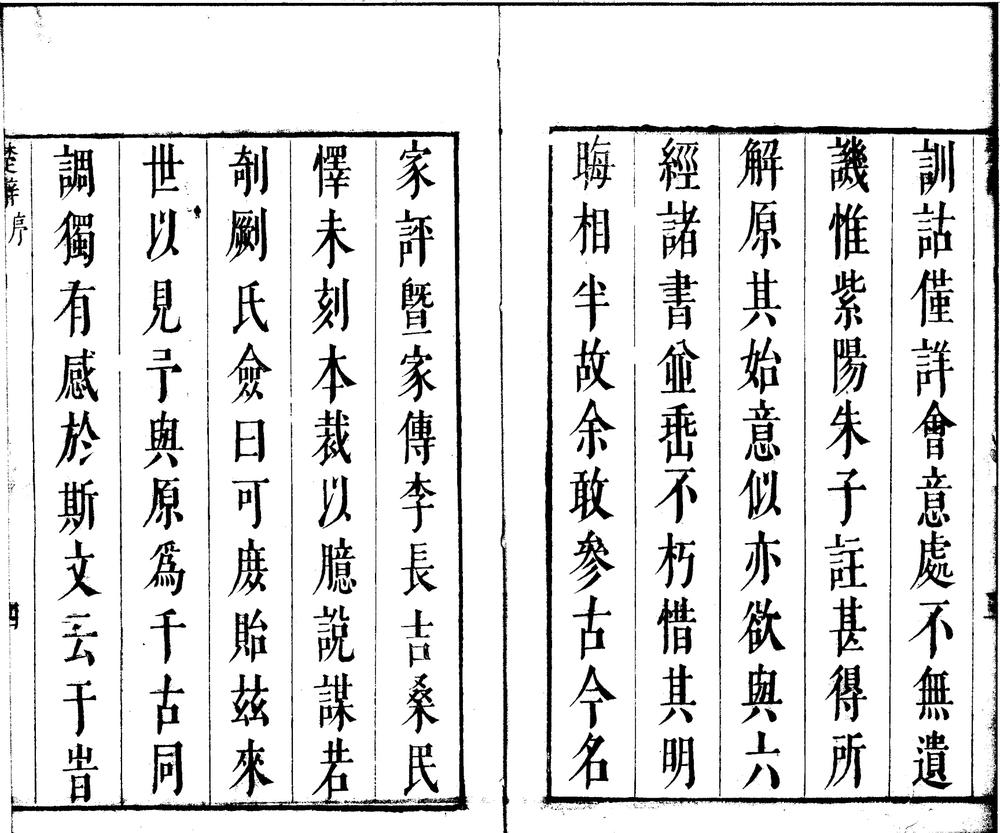 訓詁僅詳會意處不無遺
譏惟紫陽朱子註甚得所
解原其始意似亦欲與六
經諸書並垂不朽惜其明
晦相半故余敢參古今名
家評曁家傳李長吉桑民
懌未刻本裁以臆說謀若
剞劂氏僉曰可庻貽玆來
世以見予與原爲千古同
調獨有感於斯文云于旹
楚辭序
四